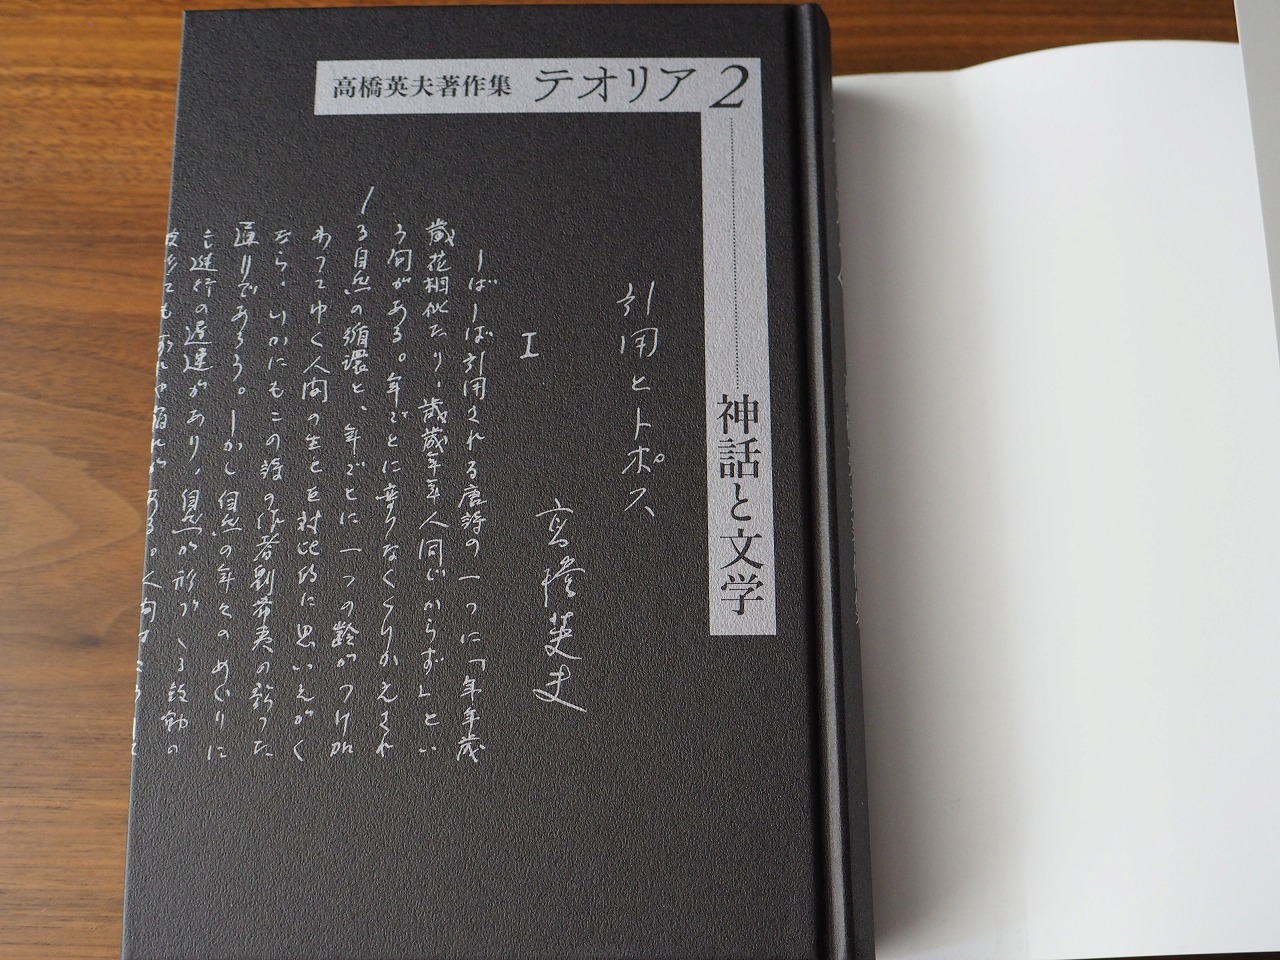 高橋英夫著作集 テオリア 2
神話と文学
引用とトポス
高橋英夫
I
しばしば引用される唐詩の一つに「年年歳
歳花相似たり、歳歳年年人同じからず」とい
う句がある。年ごとに変りなくくりかえされ
る自然の循環と、年ごとに一つの齢がつけ加
わってゆく人間の生とを対比的に思いえがく
なら、いかにもこの詩の作者劉希夷の歌った
通りであろう。しかし自然の年々のめぐりに
も進行の遅速があり、自然が形づくる鼓動の